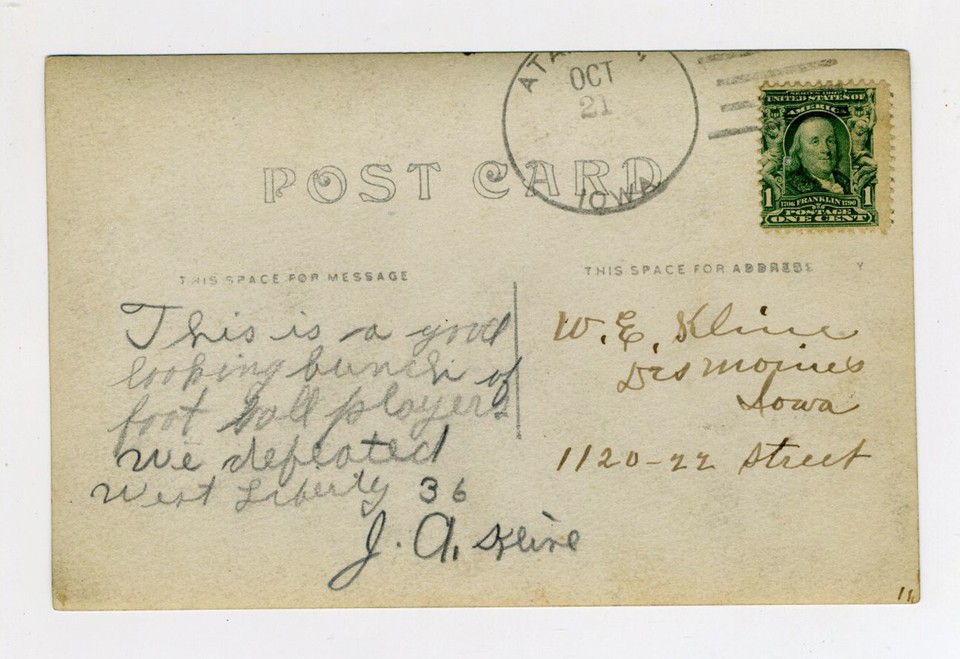 OCT
21
IOWA
POST CARD
SERIES 1902
UNITED STATES OF
AMERICA
1 1
1706 FRANKLIN 1790
POSTAGE
ONE CENT
THIS SPACE FOR MESSAGE
THIS SPACE FOR ADDRESS
This is a good
looking bunch of
foot ball players
We defeated
West Liberty 36
J. A. Kline
W. E. Kline
Des Moines
Iowa
1120-22 Street